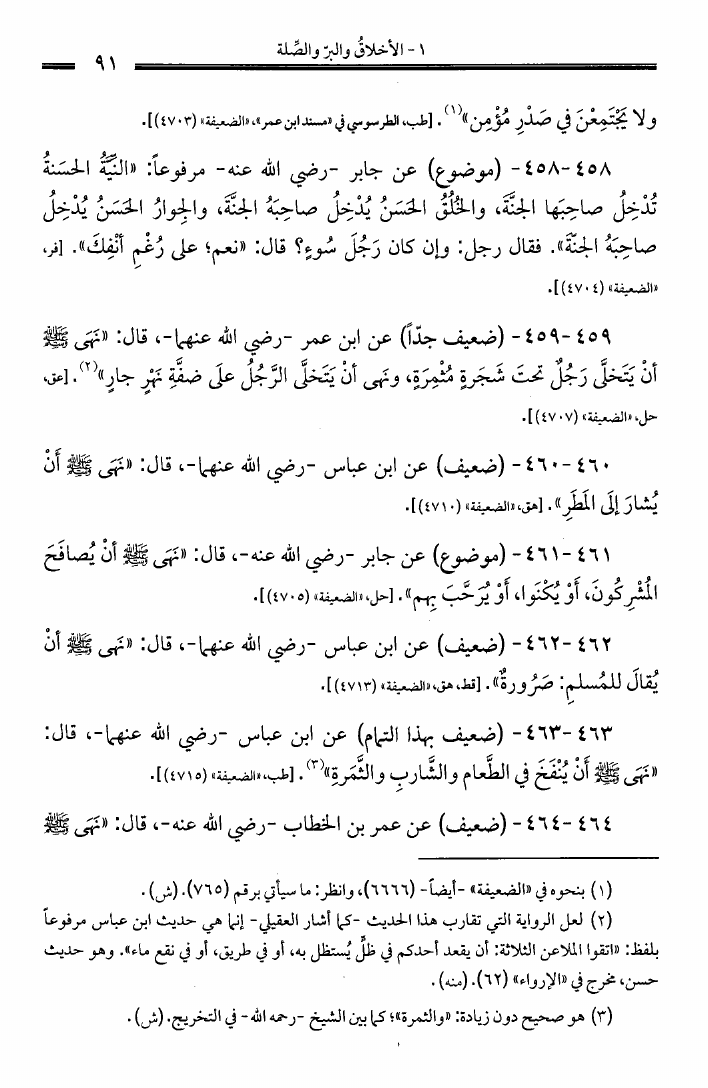 ١ - الأخلاقُ والبرّ والصِّلة
٩١
ولا يَجْتَمِعْنَ في صَدْرِ مُؤْمِن»(١). [طب، الطرسوسي في «مسند ابن عمر»، «الضعيفة» (٤٧٠٣)].
٤٥٨-٤٥٨- (موضوع) عن جابر -رضي الله عنه- مرفوعاً: «النيَّةُ الحسَنةُ
تُدْخِلُ صاحِبَها الجنَّةَ، والخُلُقُ الحَسَنُ يُدْخِلُ صاحِبَهُ الجنَّةَ، والجِوارُ الحَسَنُ يُدْخِلُ
صاحِبَهُ الجنَّةَ». فقال رجل: وإن كان رَجُلَ سُوءٍ؟ قال: «نعم؛ على رُغْمِ أنْفِكَ». [فر،
«الضعيفة» (٤٧٠٤)].
٤٥٩-٤٥٩- (ضعيف جدّاً) عن ابن عمر -رضي الله عنهما-، قال: «نَهَى ﷺ
أنْ يَتَخلَّى رَجُلٌ تحتَ شَجَرةٍ مُثْمِرَةٍ، ونَهى أنْ يَتَخلَّى الرَّجُلُ على ضفَّةِ نَهْرٍ جارٍ»(٢). [عق،
حل، «الضعيفة» (٤٧٠٧)].
٤٦٠-٤٦٠- (ضعيف) عن ابن عباس -رضي الله عنهما-، قال: «نَهَى ﷺ أَنْ
يُشارَ إلَى المَطَرِ». [هق، «الضعيفة» (٤٧١٠)].
٤٦١-٤٦١- (موضوع) عن جابر -رضي الله عنه-، قال: «نَهَى ﷺ أنْ يُصافَحَ
المُشْرِكُونَ، أوْ يُكْنَوا، أوْ يُرَحَّبَ بِهِم». [حل، «الضعيفة» (٤٧٠٥)].
٤٦٢-٤٦٢- (ضعيف) عن ابن عباس -رضي الله عنهما-، قال: «نَهَى ﷺ أنْ
يُقالَ للمُسلمِ: صَرُورةٌ». [قط، هق، «الضعيفة» (٤٧١٣)].
٤٦٣-٤٦٣- (ضعيف بهذا التمام) عن ابن عباس -رضي الله عنهما-، قال:
«نَهَى ﷺ أنْ يُنْفَخَ في الطَّعام والشَّارِبِ والثَّمَرةِ»(٣). [طب، «الضعيفة» (٤٧١٥)].
٤٦٤-٤٦٤- (ضعيف) عن عمر بن الخطاب -رضي الله عنه-، قال: «نَهَى ﷺ
(١) بنحوه في «الضعيفة» -أيضاً- (٦٦٦٦)، وانظر: ما سيأتي برقم (٧٦٥). (ش).
(٢) لعل الرواية التي تقارب هذا الحديث -كما أشار العقيلي- إنما هي حديث ابن عباس مرفوعاً
بلفظ: «اتقوا الملاعن الثلاثة: أن يقعد أحدكم في ظلٍّ يُستظل به، أو في طريق، أو في نقع ماء». وهو حديث
حسن، مخرج في «الإرواء» (٦٢). (منه).
(٣) هو صحيح دون زيادة: «والثمرة»؛ كما بين الشيخ -رحمه الله- في التخريج. (ش).